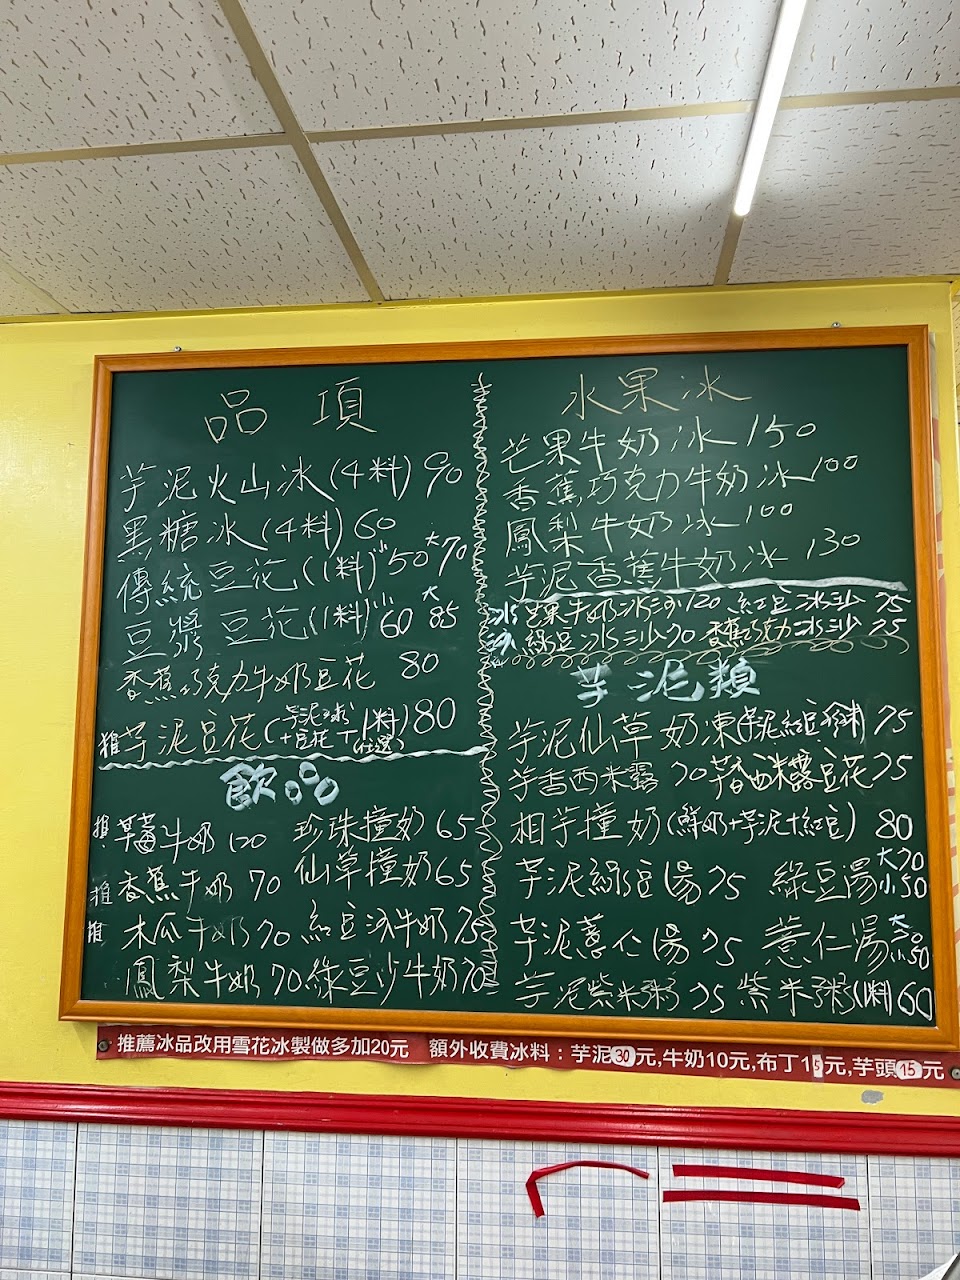 品項
芋泥火山冰(4料) 90
黑糖冰(4料) 60
傳統豆花(1料) 小50 大70
豆漿豆花(1料) 小60 大85
香蕉巧克力牛奶豆花 80
推 芋泥豆花(芋泥球+豆花+1料(任選)) 80
飲品
推 草莓牛奶 120 珍珠撞奶 65
推 香蕉牛奶 70 仙草撞奶 65
推 木瓜牛奶 70 紅豆沙牛奶 75
鳳梨牛奶 70 綠豆沙牛奶 70
水果冰
芒果牛奶冰 150
香蕉巧克力牛奶冰 100
鳳梨牛奶冰 100
芋泥香蕉牛奶冰 130
冰沙 芒果牛奶冰沙 120 紅豆冰沙 75
綠豆冰沙 70 香蕉巧克力冰沙 75
芋泥類
芋泥仙草奶凍(芋泥紅豆 75
芋香西米露 70 芋香西米露豆花 75
相芋撞奶(鮮奶+芋泥+紅豆) 80
芋泥綠豆湯 75 綠豆湯 大70 小50
芋泥薏仁湯 75 薏仁湯 大70 小50
芋泥紫米粥 75 紫米粥(1料) 60
推薦冰品改用雪花冰製做多加20元 額外收費冰料：芋泥30元,牛奶10元,布丁15元,芋頭15元